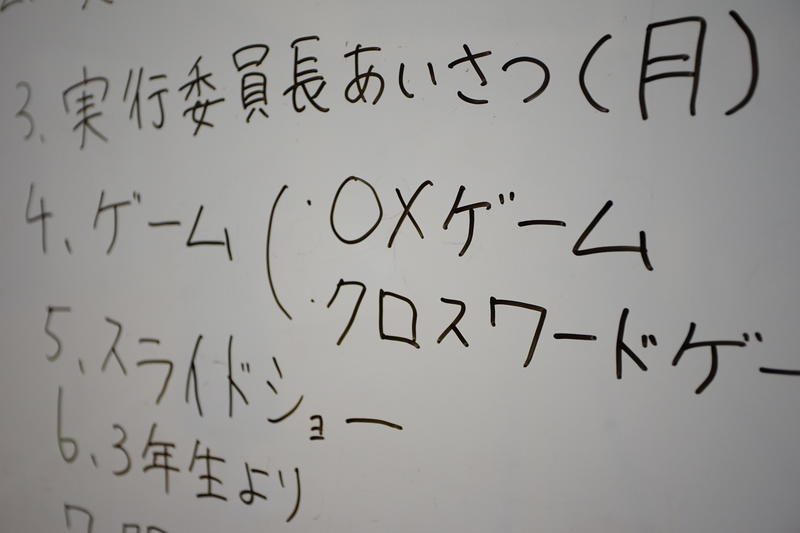 3、実行委員長あいさつ(月)
4、ゲーム(・○×ゲーム
・クロスワードゲー
5、スライドショー
6、3年生より